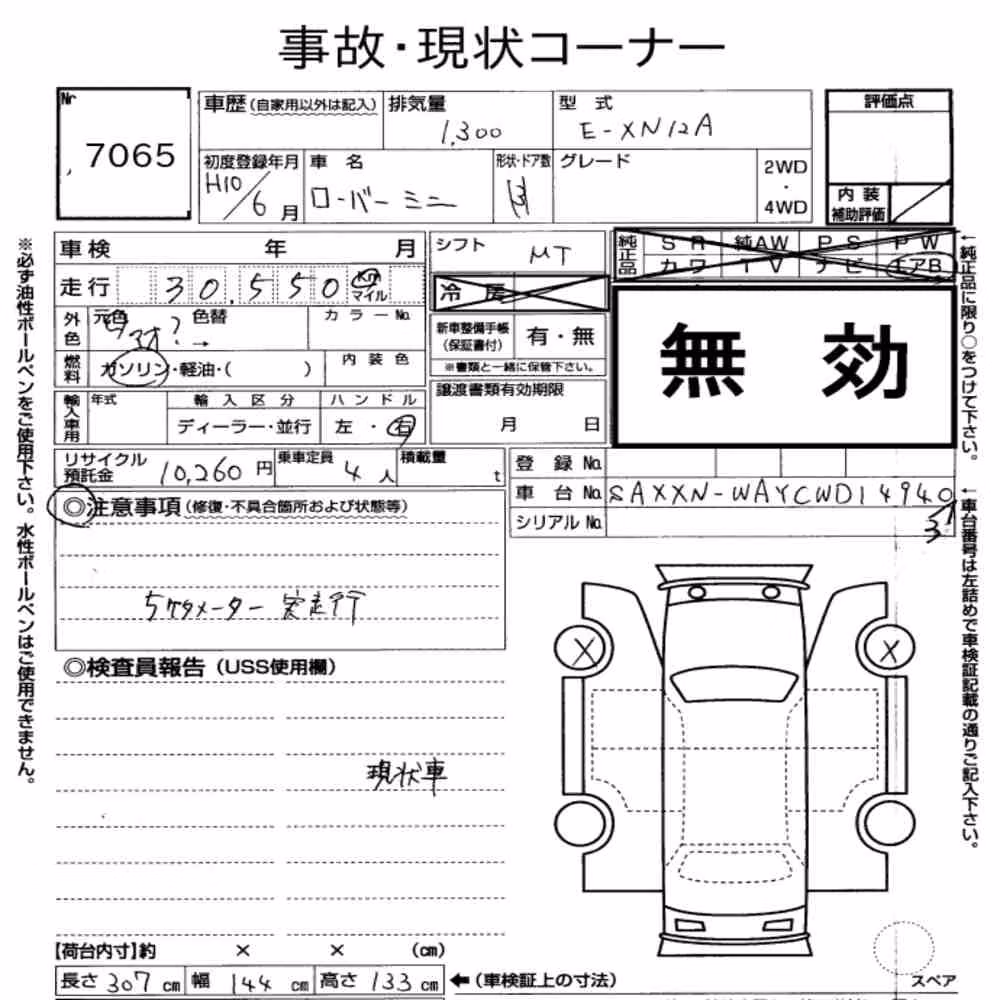 事故・現状コーナー
Nr
7065
車歴(自家用以外は記入)
排気量
1,300
型 式
E-XN12A
評価点
初度登録年月
H10/6月
車 名
ローバー ミニ
形状・ドア数
グレード
2WD
・
4WD
内 装
補助評価
車検 年 月
シフト
MT
純正品
SR 純AW PS PW
カワ TV ナビ エアB
走行 30,550 Km マイル
冷 房
外色
元色
色替
カラーNo.
→
新車整備手帳
(保証書付)
有・無
※書類と一緒に保管下さい。
無 効
燃料
ガソリン・軽油・( )
内装色
輸入車用
年式
輸入区分
ハンドル
ディーラー・並行
左・右
譲渡書類有効期限
月 日
リサイクル
預託金
10,260円
乗車定員
4人
積載量
t
登録No.
車台No. SAXXN-WAYCWD14940
3
シリアルNo.
◎注意事項(修復・不具合箇所および状態等)
5ケタメーター 実走行
◎検査員報告(USS使用欄)
現状車
【荷台内寸】約 × × (cm)
長さ 307 cm 幅 144 cm 高さ 133 cm ←(車検証上の寸法)
スペア
※必ず油性ボールペンをご使用下さい。水性ボールペンはご使用できません。
←純正品に限り○をつけて下さい。
←車台番号は左詰めで車検証記載の通りご記入下さい。